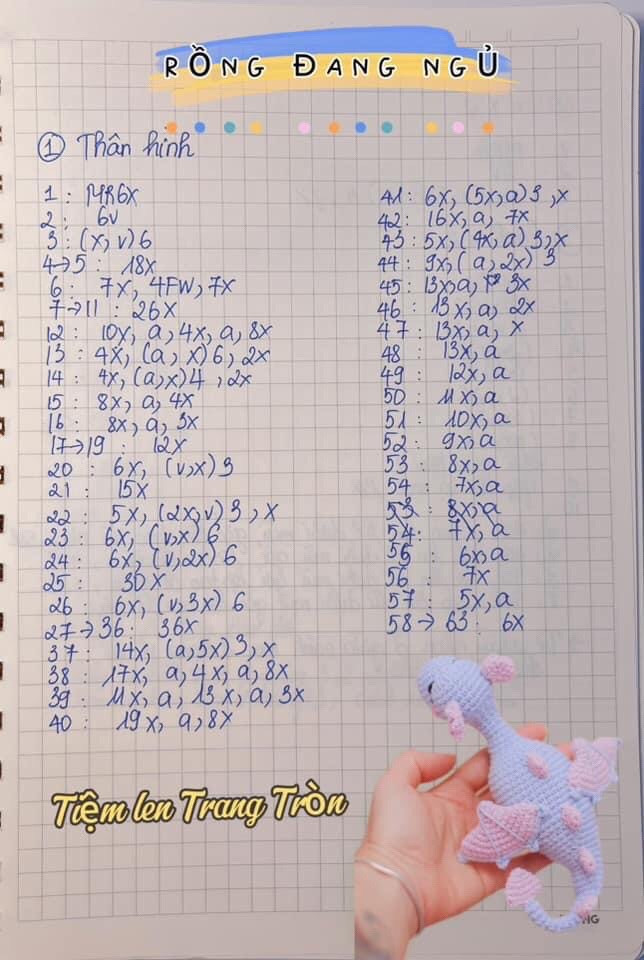 RỒNG ĐANG NGỦ
① Thân hình
1 : MR6x
2 : 6v
3 : (x, v) 6
4→5 : 18x
6 : 7x, 4FW, 7x
7→11 : 26x
12 : 10x, a, 4x, a, 8x
13 : 4x, (a, x) 6, 2x
14 : 4x, (a, x) 4, 2x
15 : 8x, a, 4x
16 : 8x, a, 3x
17→19 : 12x
20 : 6x, (v, x) 3
21 : 15x
22 : 5x, (2x, v) 3, x
23 : 6x, (v, x) 6
24 : 6x, (v, 2x) 6
25 : 30x
26 : 6x, (v, 3x) 6
27→36 : 36x
37 : 14x, (a, 5x) 3, x
38 : 17x, a, 4x, a, 8x
39 : 11x, a, 13x, a, 3x
40 : 19x, a, 8x
41 : 6x, (5x, a) 3, x
42 : 16x, a, 7x
43 : 5x, (4x, a) 3, x
44 : 9x, (a, 2x) 3
45 : 13x, a, 3x
46 : 13x, a, 2x
47 : 13x, a, x
48 : 13x, a
49 : 12x, a
50 : 11x, a
51 : 10x, a
52 : 9x, a
53 : 8x, a
54 : 7x, a
53 : 8x, a
54 : 7x, a
55 : 6x, a
56 : 7x
57 : 5x, a
58→63 : 6x
Tiệm len Trang Tròn